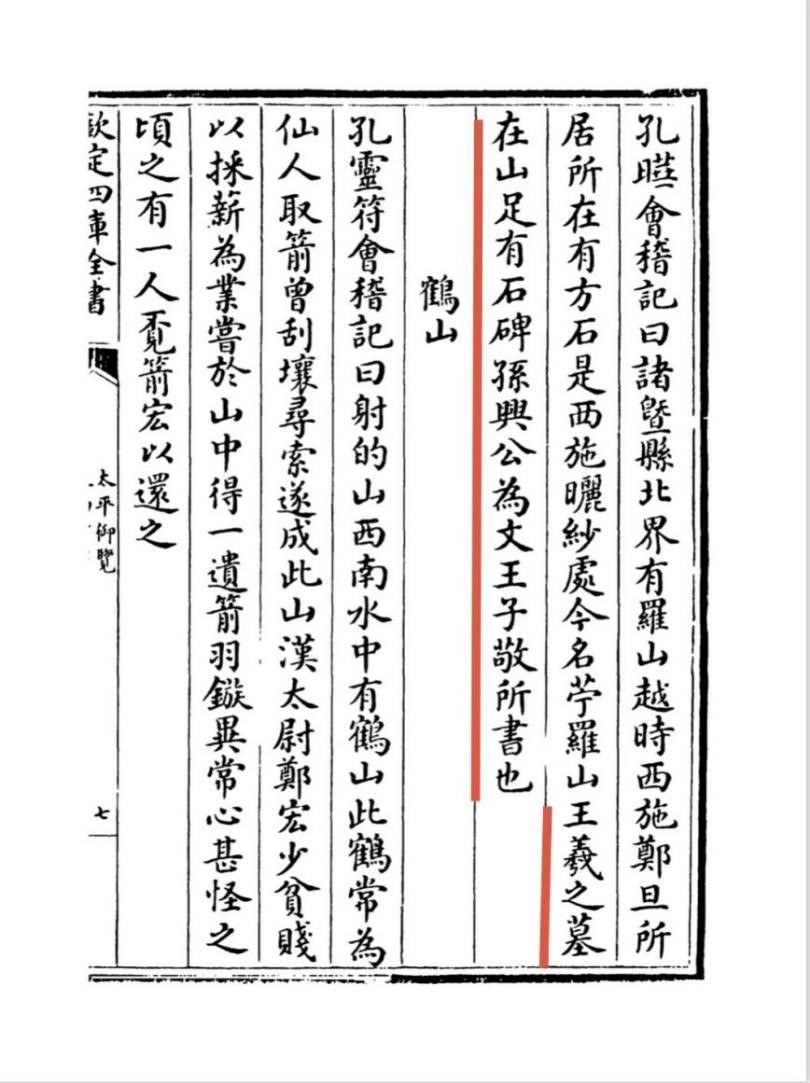 孔曄會稽記曰諸暨縣北界有羅山越時西施鄭旦所
居所在有方石是西施曬紗處今名苧羅山王羲之墓
在山足有石碑孫興公為文王子敬所書也
鶴山
孔靈符會稽記曰射的山西南水中有鶴山此鶴常為
仙人取箭曾刮壤尋索遂成此山漢太尉鄭宏少貧賤
以採薪為業嘗於山中得一遺箭羽鏃異常心甚怪之
頃之有一人覔箭宏以還之
欽定四庫全書
太平御覽
七